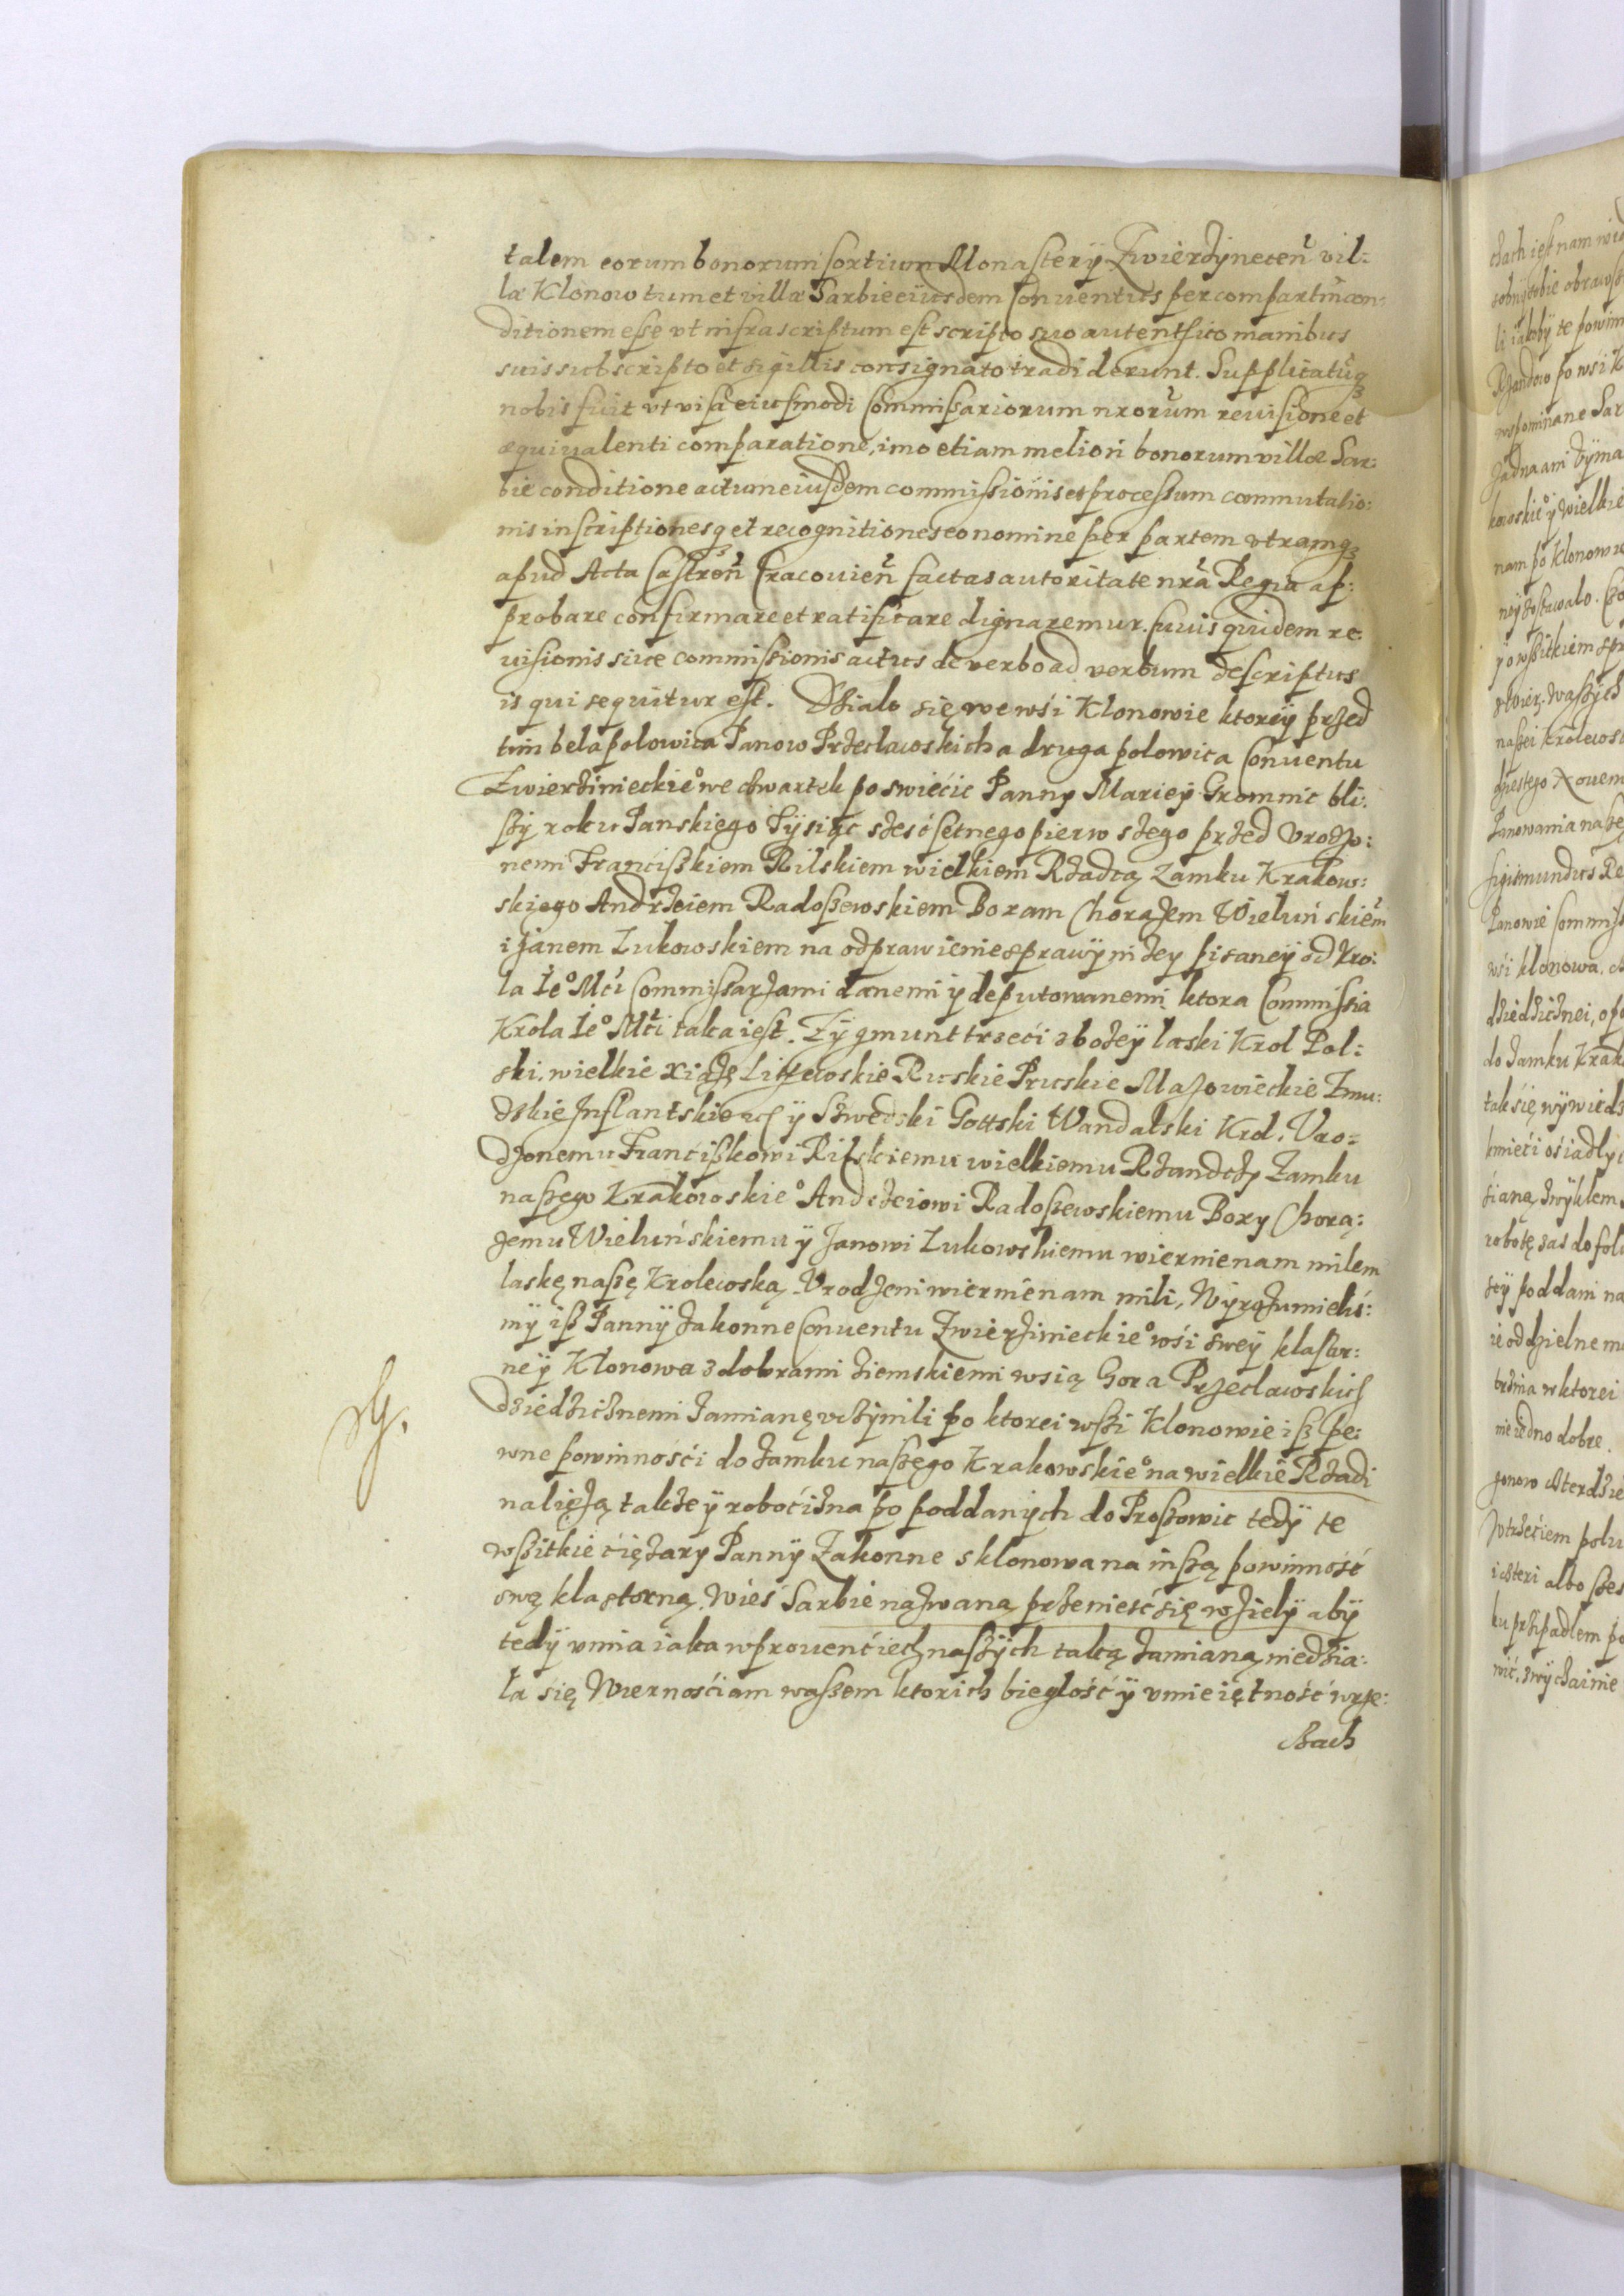 talem eorum bonorum sortium Monasterÿ Zwierzynecen̄ vil:
læ Klonow tum et villæ Sarbie eiusdem Conuentus per compartm̄ con:
ditionem esse vt infrascriptum est scripto suo autentico manibus
suis subscripto et sigillis consignato tradiderunt. Supplicatūq3
nobis fuit vt visa eiusmodi Commissariorum nrorum reuisione et
æquiualenti comparatione, imo etiam meliori bonorum villæ Sar:
bie conditione actum eiusdem commissionis et processum commutatio:
nis inscriptionesq3 et recognitiones eo nomine per partem vtramq3
apud Acta Castren̄ Cracouien̄ factas autoritate nrā Regia ap:
probare confirmare et ratificare dignaremur. Cuius quidem re:
uisionis siue commissionis actus de verbo ad verbum descriptus
is qui sequitur est. Dzialo się we wśi Klonowie ktoreÿ przed
tim bela polowica Panow Przeclawskich a druga polowica Conuentu
Zwierzinieckie° we czwartek po swięcie Panny Marieÿ Gromnic bli:
szÿ roku Panskiego Tÿsiąc szescsetnego pierwszego przed Vrodzo:
nemi Franciszkiem Rilskiem wielkiem Rządcą Zamku Krakow:
skiego Andrzeiem Radoszewskiem Boxam Chorązem Wieluńskiem
i Janem Lukowskiem na odprawienie sprawÿ nizey pisaneÿ od Kro:
la Ie° Mći Commissarzami danemi ÿ deputowanemi ktora Commissia
Krola Ie° Mći taka iest. Zÿgmunt trzeći z bożeÿ laski Krol Pol:
ski. wielkie xiążę Litewskie Ruskie Pruskie Mazowieckie Zmu:
dzkie Inflantskie ÿ Szwedski Gottski Wandalski Krol. Vro:
dzonemu Franciszkowi Rilskiemu wielkiemu Rzandczy Zamku
naszego Krakowskie° Andrzeiowi Radoszewskiemu Boxy Chorą:
zemu Wieluńskiemu ÿ Janowi Lukowskiemu wiernie nam milem
laskę naszę Krolewską. Vrodzeni wiernie nam mili, Wyrozumieliś:
mÿ isz Pannÿ Zakonne Conuentu Zwierzinieckie° wśi sweÿ klasztor:
neÿ Klonowa z dobrami ziemskiemi wsią Gora Przeclawskich
dziedzicznemi zamianę vczÿnili po ktorei wszi Klonowie isz pe:
wne powinnośći do zamku naszego Krakowskie° na wielkie Rządi
należą takze ÿ roboćizna po poddanÿch do Proszowic tedÿ te
wszitkie ciężary Pannÿ Zakonne s klonowa na inszą powinność
swą klastorną. Wieś Sarbie nazwaną przenieść się wzielÿ abÿ
tedÿ vmia iaka w prouenćiech naszÿch taką zamianą nie dzia:
la się Wiernośćiam waszem ktorich bieglość ÿ vmieiętność w rze:
czach